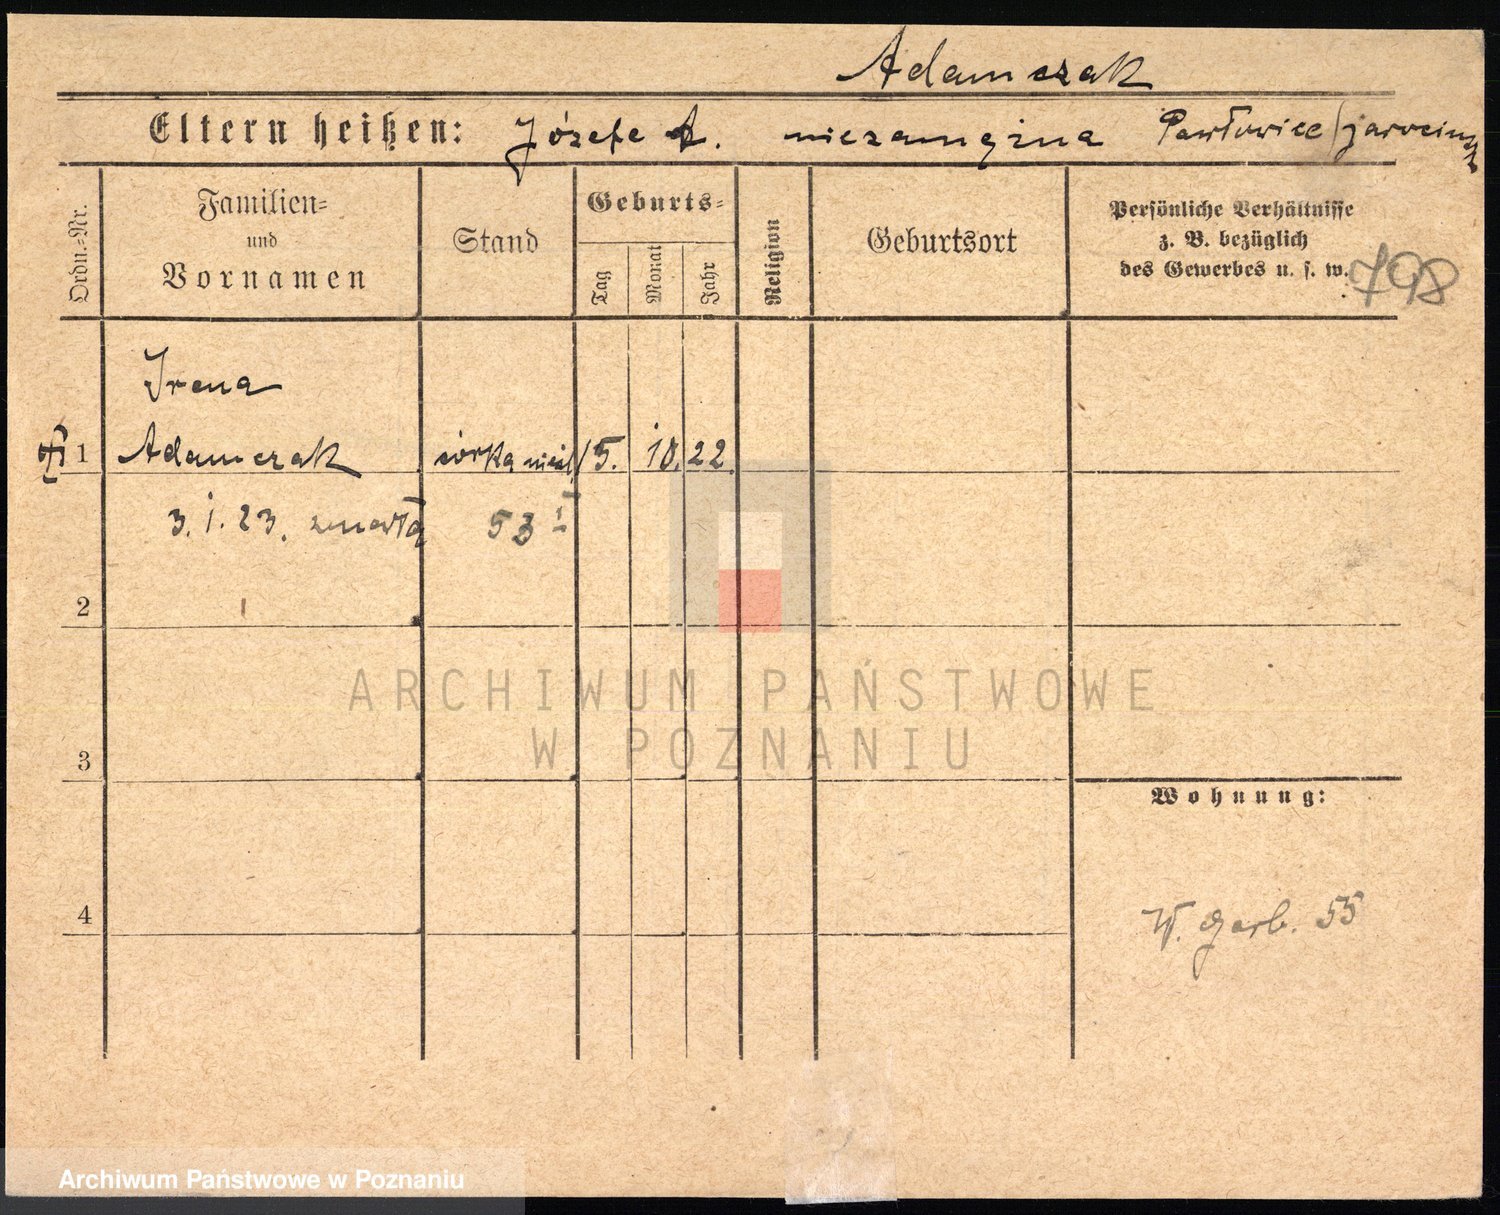 Adamczak
Eltern heißen: Józefa A. niezamężna Pawłowice/jarocin
Ordn.-Nr.
Familien-
und
Vornamen
Stand
Geburts-
Tag
Monat
Jahr
Religion
Geburtsort
Persönliche Verhältnisse
z. B. bezüglich
des Gewerbes u. s. w.
798
Irena
1 Adamczak córka nieśl. 15. 10. 22
3. 1. 23. zmarła 53 I
2
ARCHIWUM PAŃSTWOWE
W POZNANIU
3
Wohnung:
4
W. Garb. 55
Archiwum Państwowe w Poznaniu